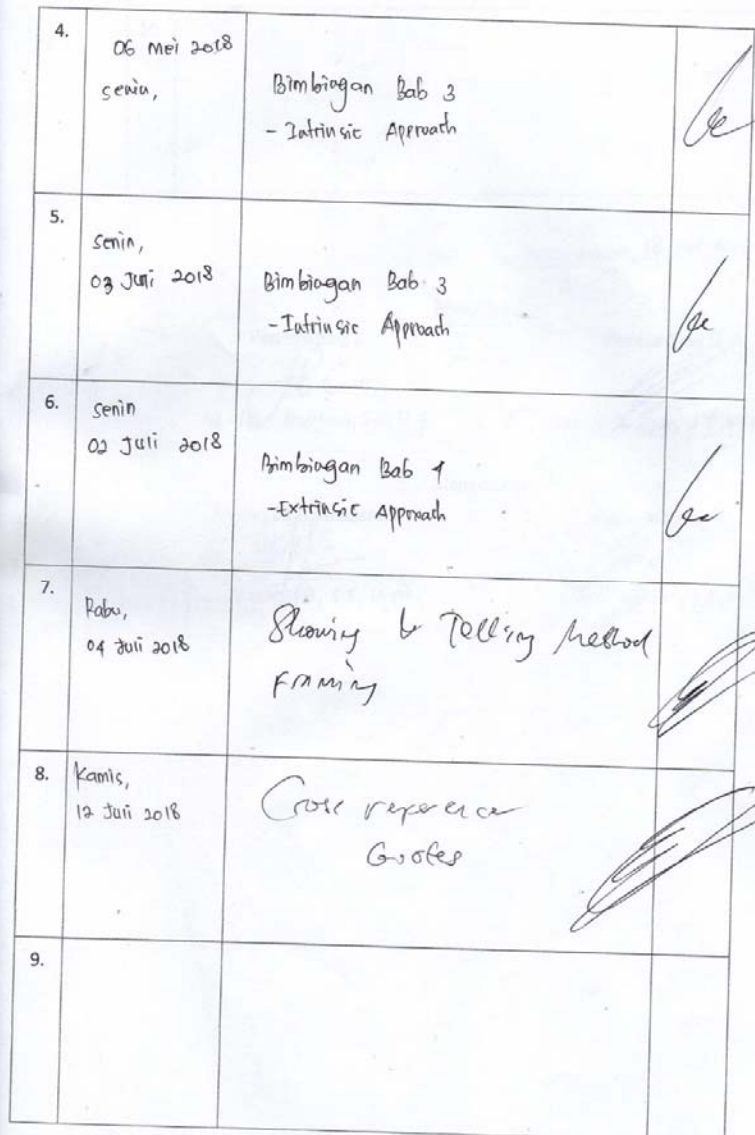 4.
06 Mei 2018
Senin,
Bimbingan Bab 3
- Intrinsic Approach
5.
Senin,
03 Juni 2018
Bimbingan Bab 3
- Intrinsic Approach
6.
Senin
02 Juli 2018
Bimbingan Bab 4
- Extrinsic Approach
7.
Rabu,
04 Juli 2018
Showing & Telling Method
Framing
8.
Kamis,
12 Juli 2018
Cross reference
Quotes
9.